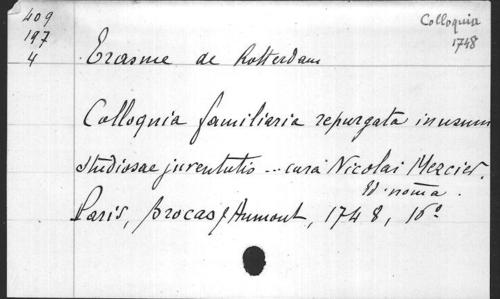 409
197
4
Colloquia
1748
Erasme de Rotterdam
Colloquia familiaria repurgata in usum
studiosae juventutis ... cura Nicolai Mercier.
Ed. noma.
Paris, Brocas & Aumont, 1748, 16º